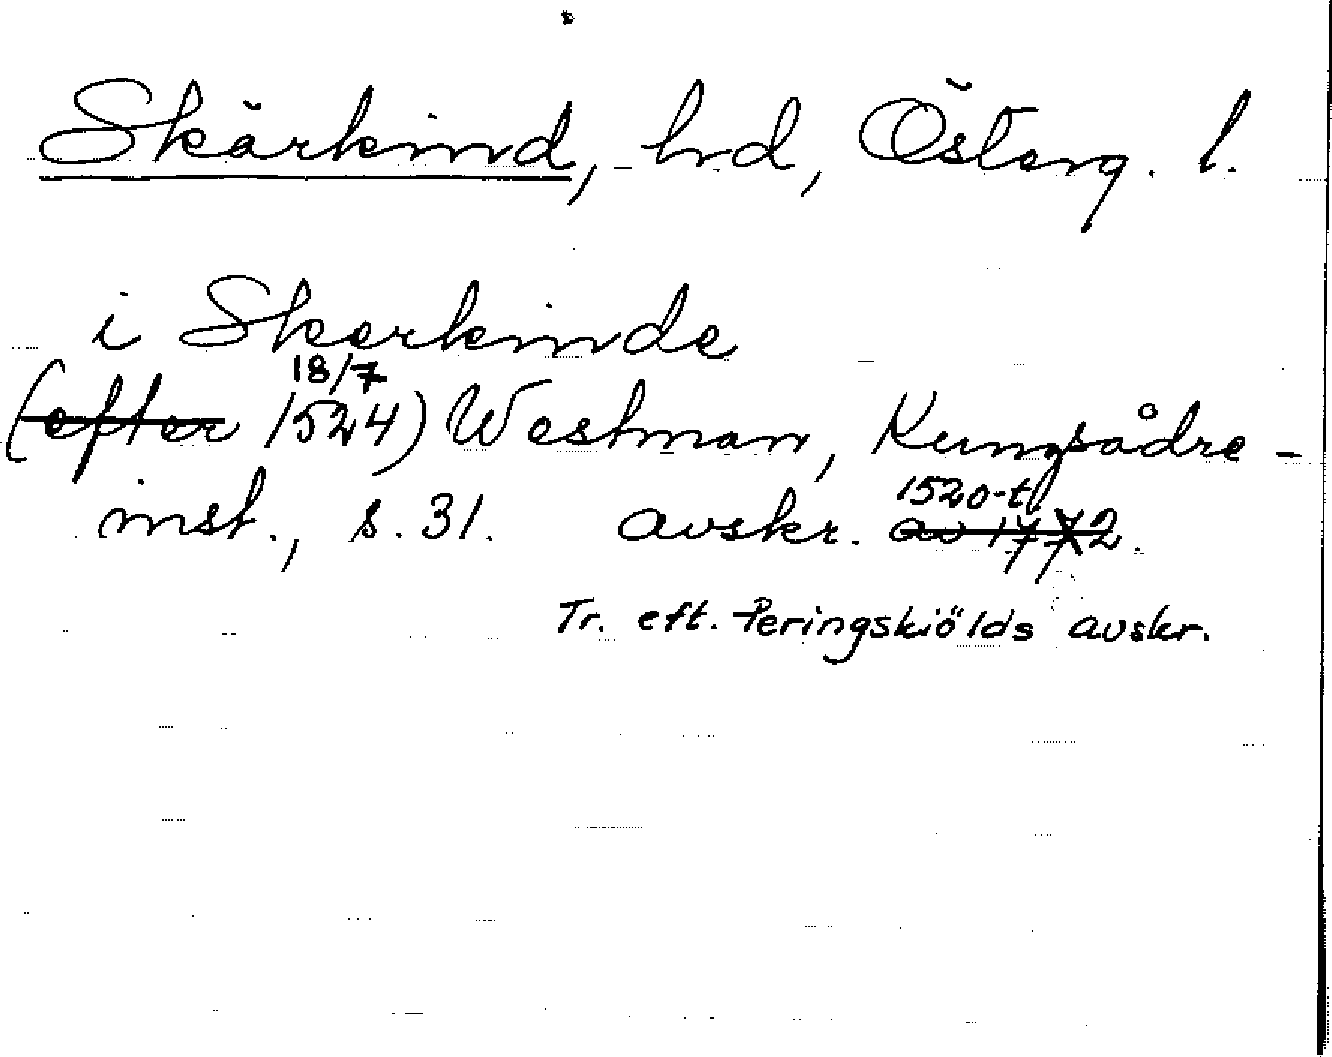 Skärkind, hd, Österg. l.
i Skerkinde
18/7
(efter 1524) Westman, Kungsådre-
1520-t
inst., s. 31. avskr. av 1772.
Tr. eft. Peringskiölds avskr.